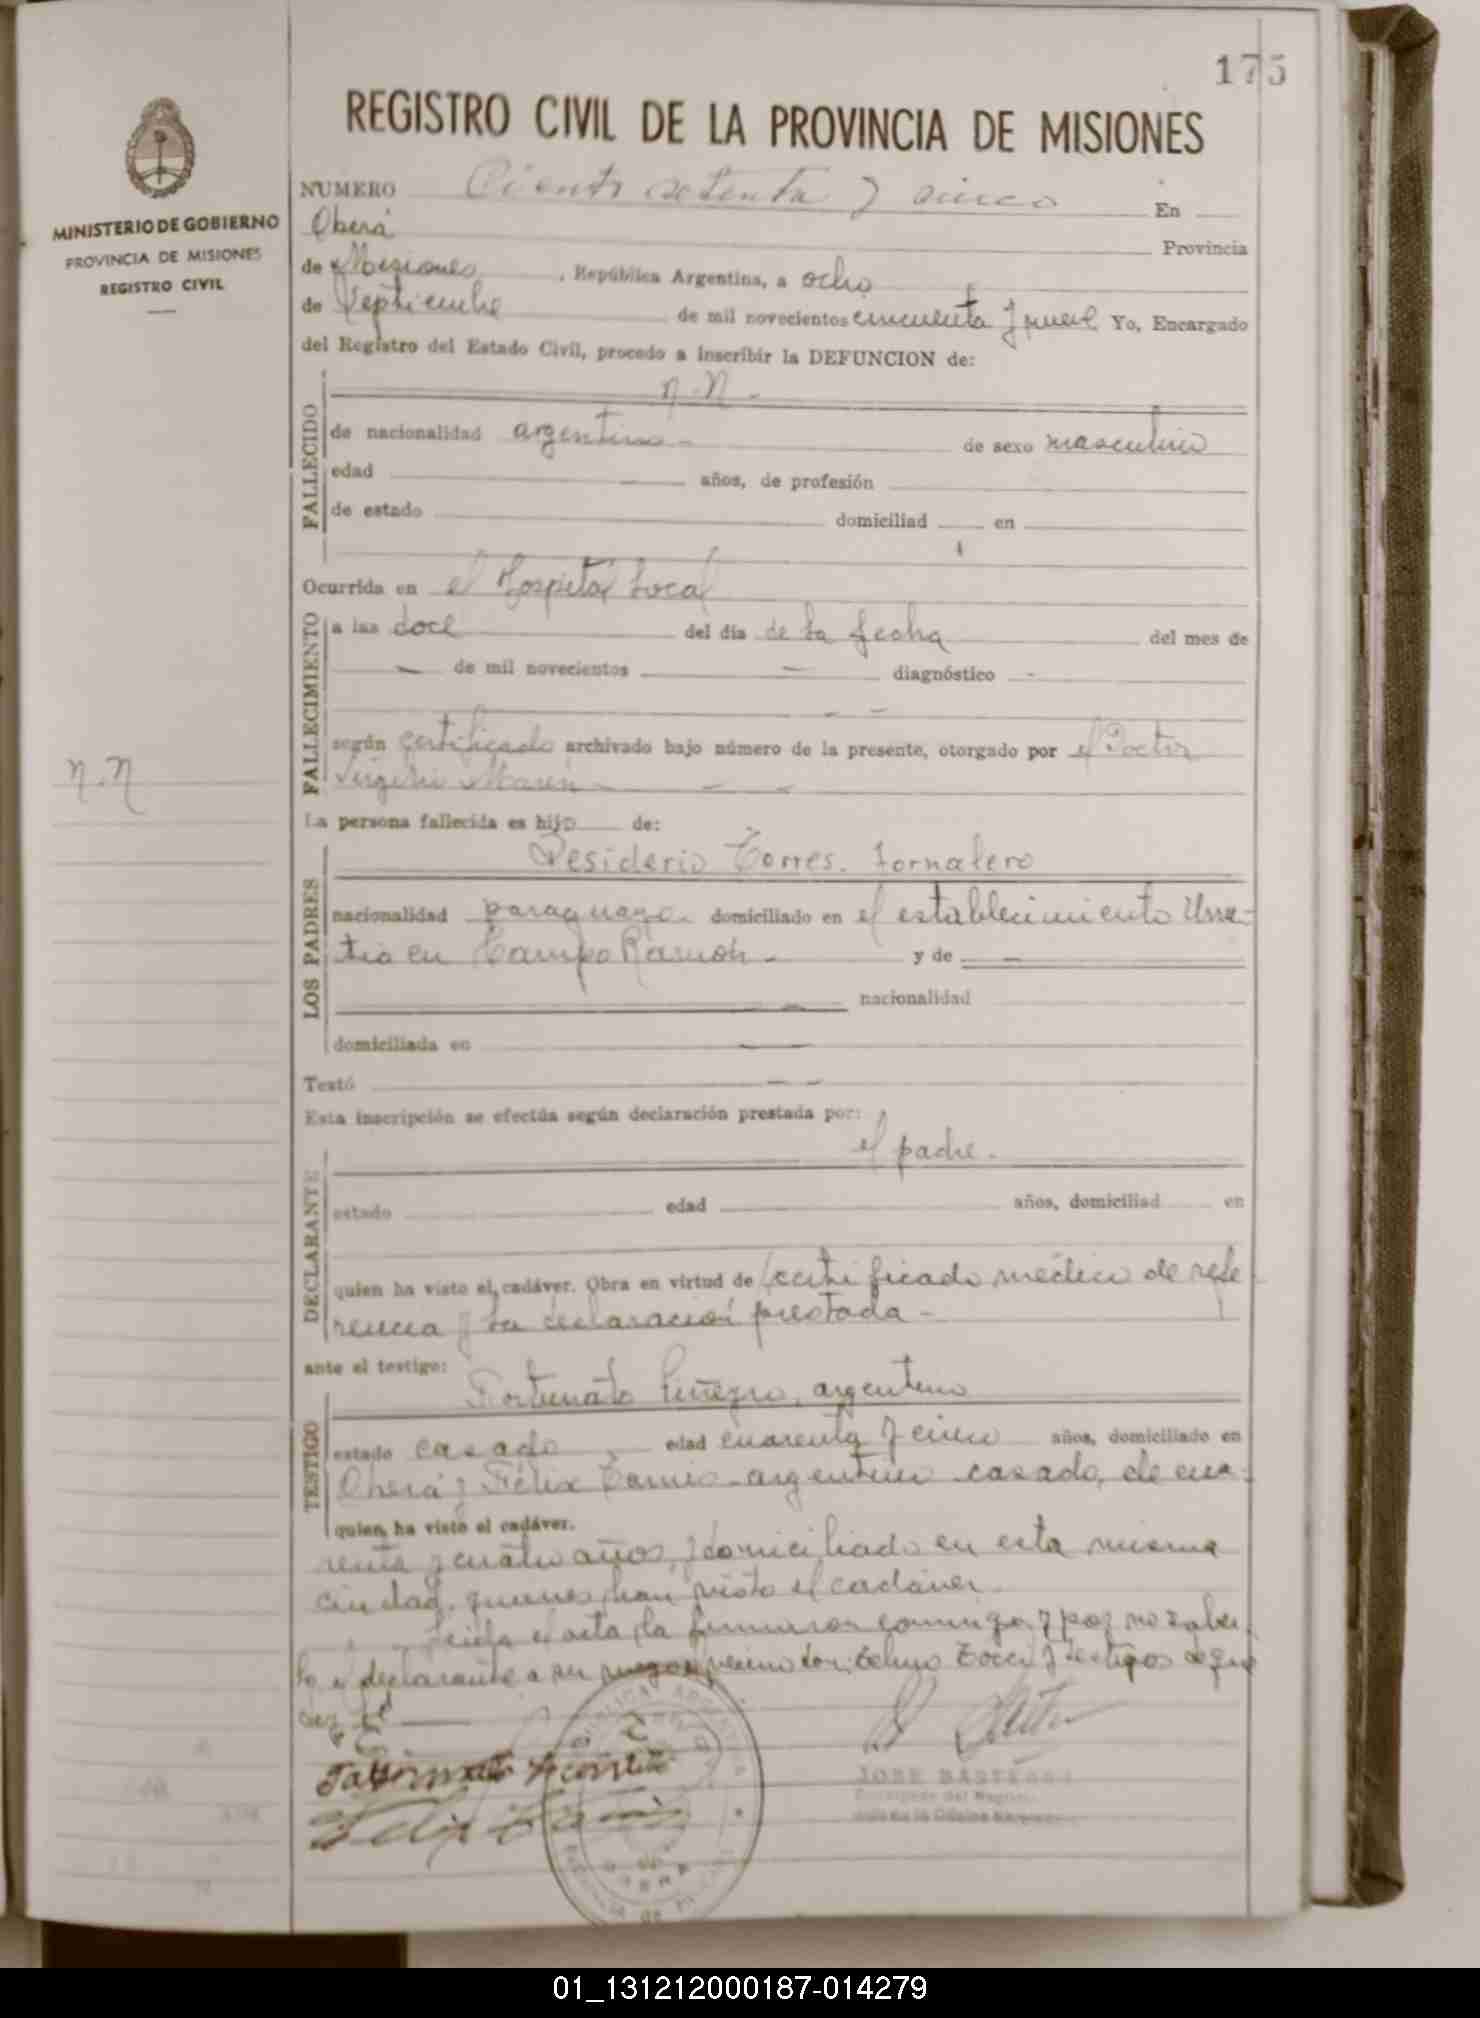 175
REGISTRO CIVIL DE LA PROVINCIA DE MISIONES
MINISTERIO DE GOBIERNO
PROVINCIA DE MISIONES
REGISTRO CIVIL
NUMERO Ciento setenta y cinco En
Oberá Provincia
de Misiones, República Argentina, a ocho
de Septiembre de mil novecientos cincuenta y nueve Yo, Encargado
del Registro del Estado Civil, procedo a inscribir la DEFUNCION de:
FALLECIDO
N.N.-
de nacionalidad argentino- de sexo masculino
edad años, de profesión
de estado domiciliad en
Ocurrida en el Hospital Local
FALLECIMIENTO
a las doce del día de la fecha del mes de
— de mil novecientos — diagnóstico -
— —
según certificado archivado bajo número de la presente, otorgado por el Doctor
Marén - — —
N.N
La persona fallecida es hijo de:
LOS PADRES
Desiderio Torres. Jornalero
nacionalidad paraguayo domiciliado en el establecimiento Urru-
tia en Campo Ramón - y de —
— — nacionalidad
domiciliada en —
Testó — —
Esta inscripción se efectúa según declaración prestada por:
DECLARANTE
el padre.
estado edad años, domiciliad en
quien ha visto el cadáver. Obra en virtud de certificado médico de refe-
rencia y la declaración prestada -
ante el testigo:
TESTIGO
Fortunato argentino
estado casado, edad cuarenta y cinco años, domiciliado en
Oberá y Félix argentino casado, de cua-
quien ha visto el cadáver.
renta y cuatro años, domiciliado en esta misma
ciudad, quienes han visto el cadáver.
Leída el acta, la firmaron conmigo y por no saber-
lo el declarante a su ruego vecino don Tocci y testigos de que
JOSE
Encargado del Registro
OBERA
01_131212000187-014279